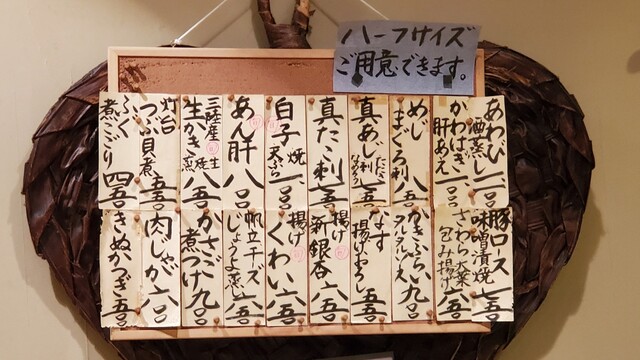 ハーフサイズ
ご用意できます。
あわび
酒蒸し
かわはぎ
肝あえ
一八〇〇
めじ
まぐろ刺
八五〇
真あじ
刺
たたき
なめろう
真たこ刺
白子
焼
天ぷら
あん肝
八〇〇
三陸産
生かき
生
蒸
八五〇
灯台
つぶ貝煮
五五〇
ふぐ
煮こごり
四五〇
豚ロース
味噌漬焼
七五〇
さわら
包み揚げ
六五〇
かきふらい
タルタルソース
九〇〇
なす
揚げおろし
五五〇
揚げ
新銀杏
六五〇
揚げ
くわい
六五〇
帆立チーズ
しょうよ蒸し
六五〇
かさご
煮つけ
九〇〇
肉じゃが
六〇〇
きぬかつぎ
五五〇